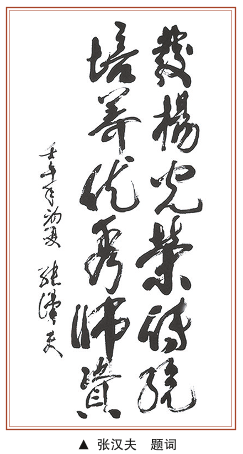 發揚光榮傳統
培养优秀师资
壬午年初夏 張漢夫
▲ 张汉夫 题词